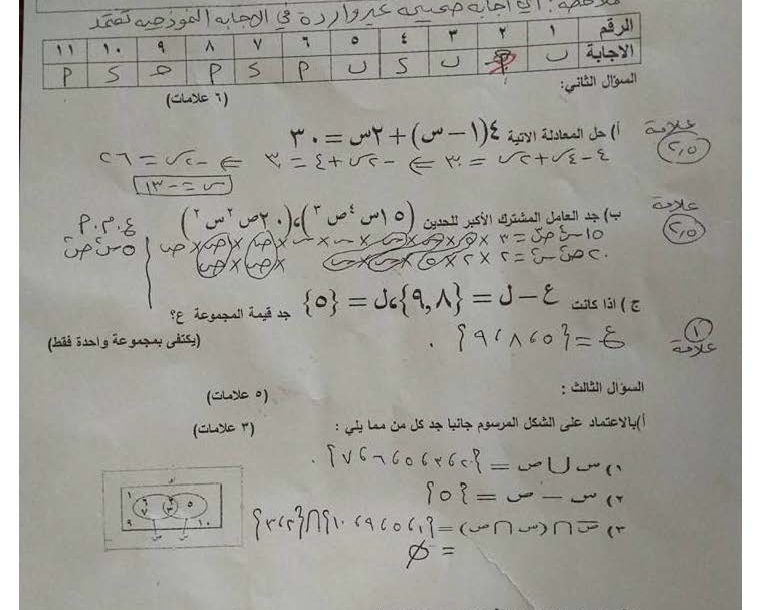 ملاحظة: أي اجابة صحيحة غير واردة في الاجابة النموذجية تعتمد
الرقم ١ ٢ ٣ ٤ ٥ ٦ ٧ ٨ ٩ ١٠ ١١
الاجابة ب ب د ب م د م ج د م
السؤال الثاني:
(٦ علامات)
أ) حل المعادلة الاتية ٤(١ − س) + ٢س = ٣٠
علامة ٢,٥
٤ − ٤س + ٢س = ٣٠ ⇐ −٢س + ٤ = ٣٠ ⇐ −٢س = ٢٦
س = −١٣
ب) جد العامل المشترك الأكبر للحدين (١٥س٤ص٣)،(٢٠ص٢س٢)
علامة ٢,٥
ع.م.م
ج) اذا كانت ع − ل = {٩,٨}، ل = {٥} جد قيمة المجموعة ع؟
(يكتفى بمجموعة واحدة فقط)
ع = {٥، ٨، ٩}.
١ علامة
السؤال الثالث :
(٥ علامات)
أ)بالاعتماد على الشكل المرسوم جانبا جد كل من مما يلي :
(٣ علامات)
١) س U ص = {٢، ٣، ٥، ٦، ٧}.
٢) س − ص = {٥}
٣) س̄ ∩ (س ∩ ص) = {١، ٥، ٩، ١٠} ∩ {٢، ٣}
= ∅